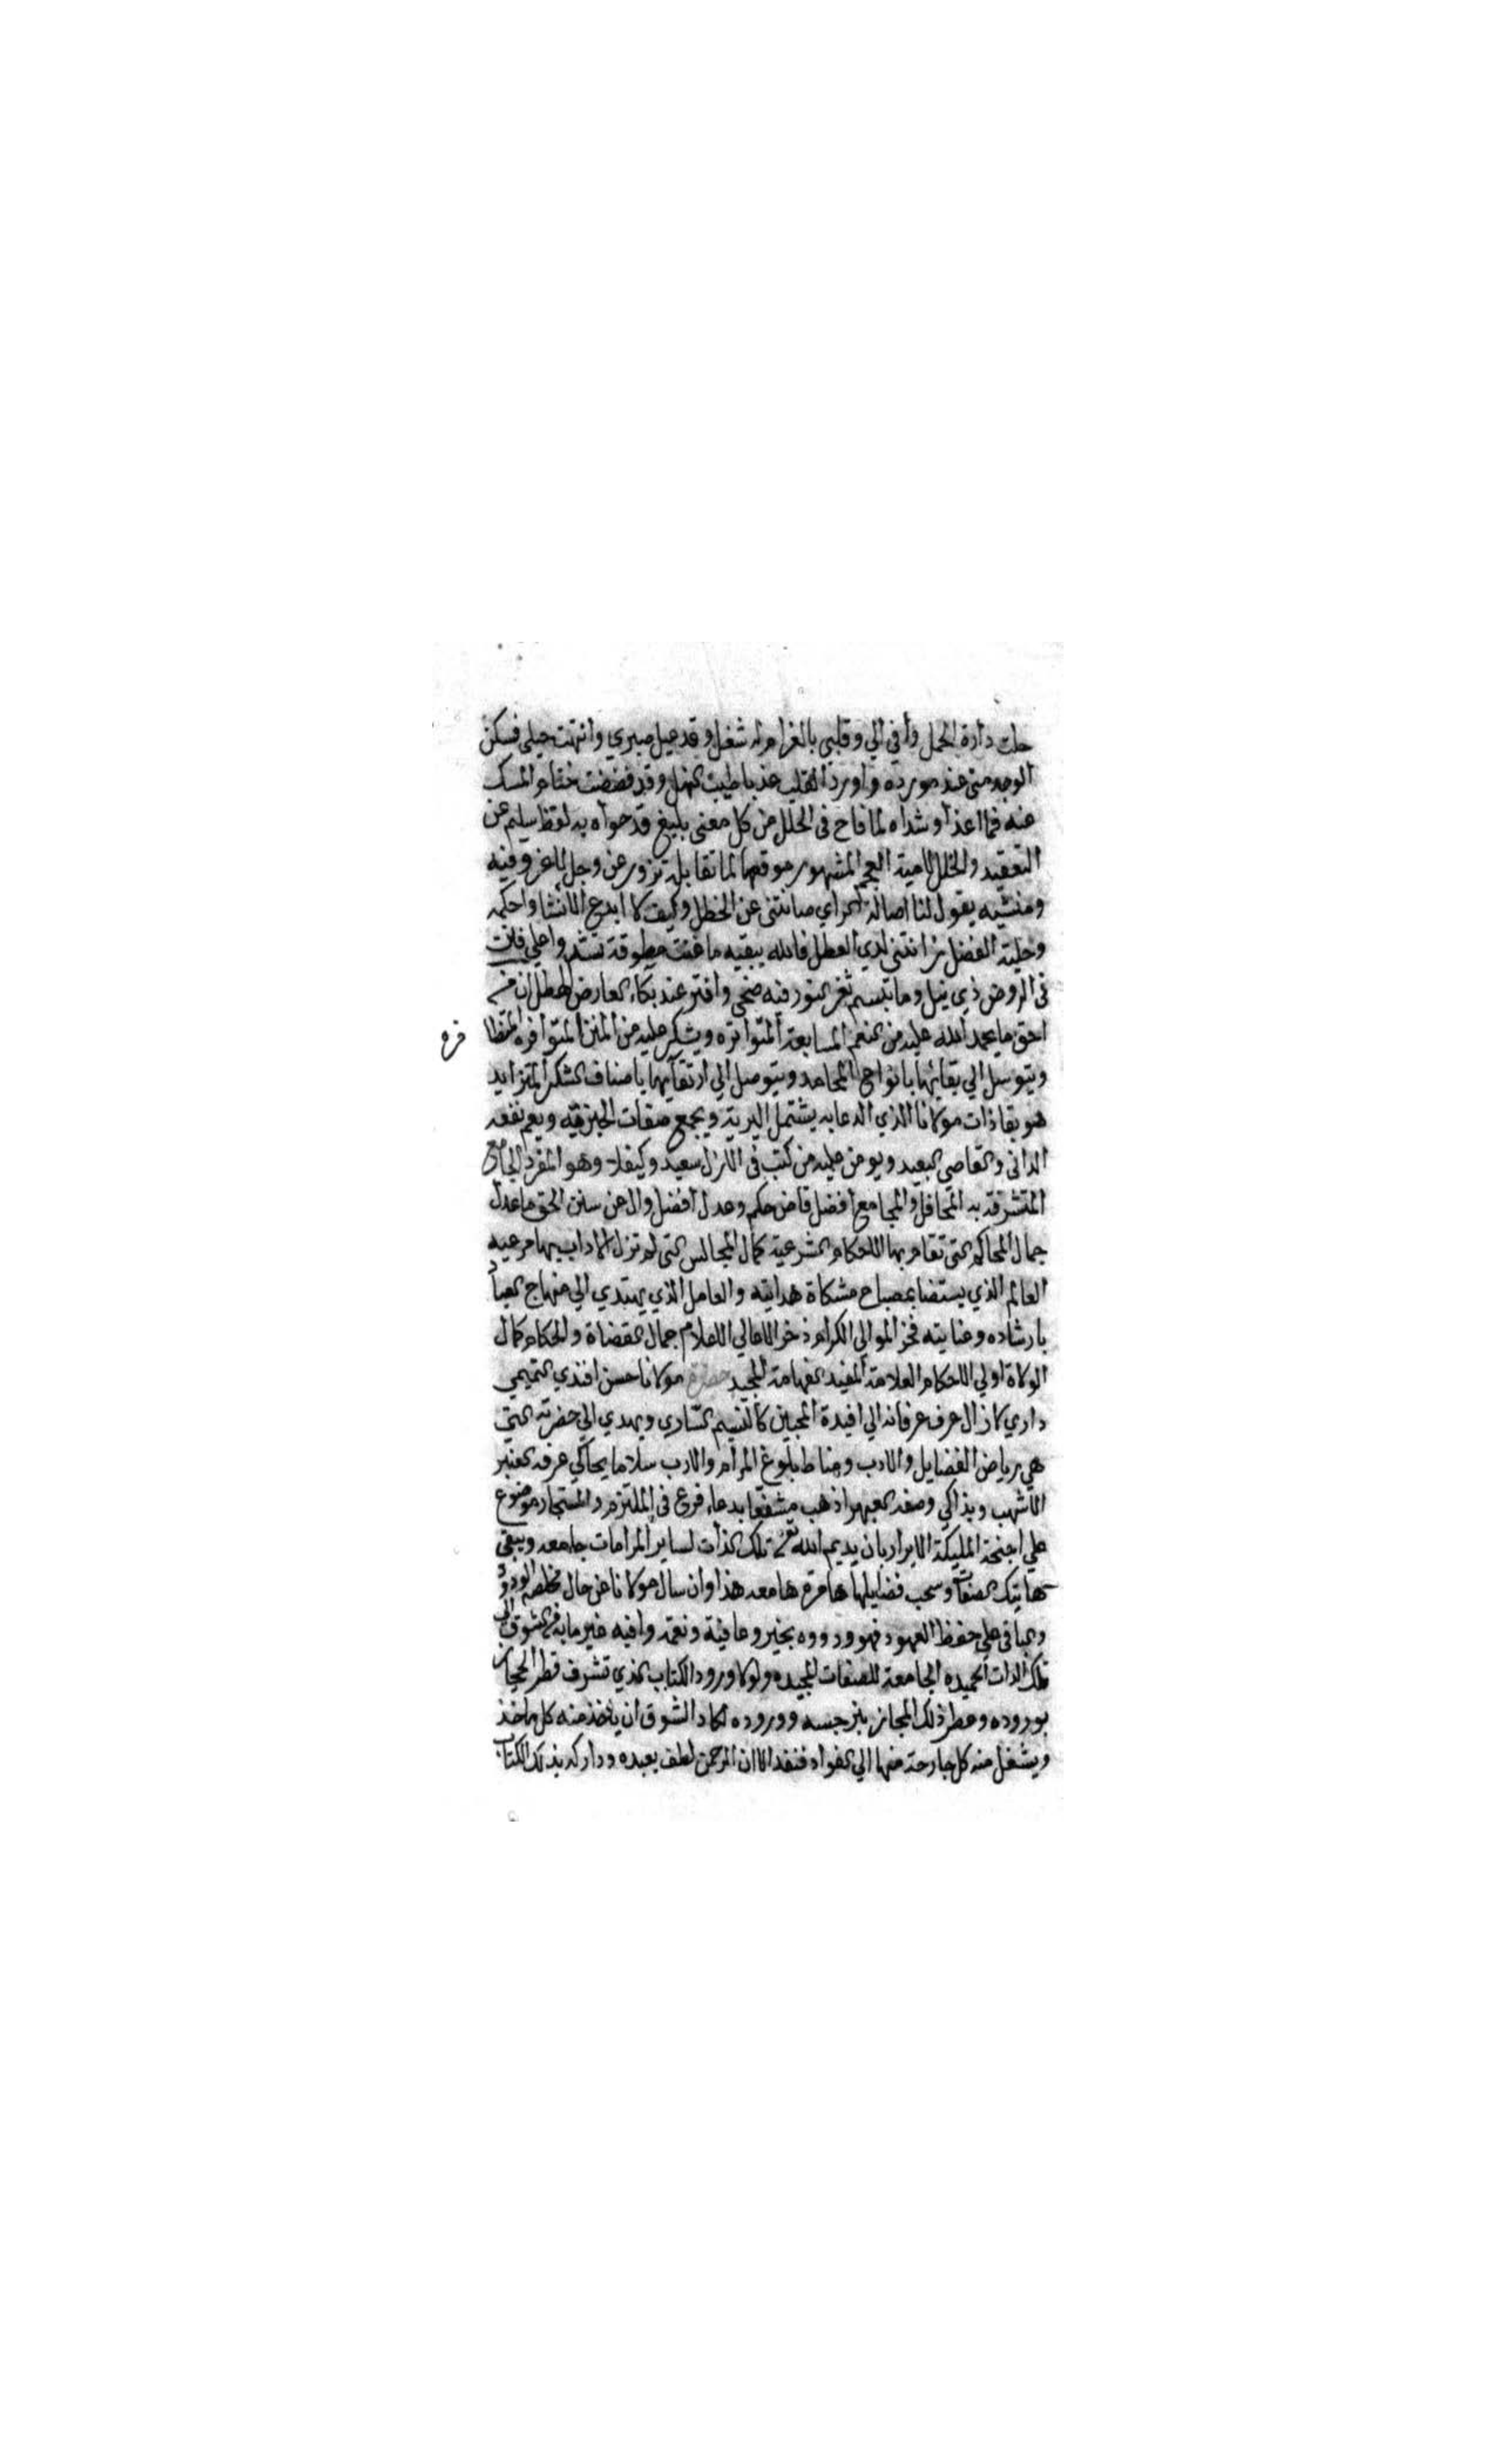 حلت دارة الحمل وافى الي وقلبي بالغرام له شغل وقد عيل صبري وانتهت حيلي فسكن
الوجد مني عند مورده واورد القلب عذبا طيب النهل وقد فضضت ختام المسك
عنه فما اعذا وشداه لما فاح في الحلل من كل معنى بليغ قد حواه به لفظ سليم عن
التعقيد والخلل لامية العجم المشهور موقعها لما تقابله تزور عن وجل لا غرو فيه
ومنشيه يقول لنا اصالة الراي صانتني عن الخطل وكيف لا ابدع الانشا واحكمه
وحلية الفضل زانتني لدي العطل فالله يبقيه ما غنت مطوقة تشدو اعلي فانت
في الروض ذي ميل وما تبسم ثغر النور فيه ضحى وافتر عند بكاء العارض الهطل ان من
احق ما يحمد الله عليه من النعم المسابعة المتواتره ويشكر عليه من المنن المتوافره المتظا
فره
ويتوسل الي بقائها بانواع المحامد ويتوصل الي ارتقائها باصناف الشكر المتزايد
هو بقا ذات مولانا الذي الدعا به يشتمل البرية ويجمع صفات الخيرية ويعم نفعه
الداني والقاصي البعيد ويومن عليه من كتب في الازل سعيد وكيف لا وهو المفرد الجامع
المتشرفة به المحافل والمجامع افضل قاض حكم وعدل افضل وال عن سنن الحق ما عدل
جمال المحاكم التي تقام بها الاحكام الشرعية كمال المجالس التي لم تزل الاداب بها مرعيه
العالم الذي يستضا بمصباح مشكاة هدايته والعامل الذي يهتدي الي منهاج العباد
بارشاده وعنايته فخر الموالي الكرام ذخر الاهالي الاعلام جمال القضاة والحكام كمال
الولاة اولي الاحكام العلامة المفيد الفهامة المجيد حضرة مولانا حسن افندي التميمي
داري لا زال عرف عرفانه الي افيدة المحبين كالنسيم الساري ويهدي الي حضرته التي
هي رياض الفضايل والادب ومناط بلوغ المرام والارب سلاما يحاكي عرفه العنبر
الاشهب ويذاكي وصفه العبهر اذهب مشفعا بدعاء فرع في الملتزم والمستجار موضوع
علي اجنحة المليكة الابرار بان يديم الله تعالى تلك الذات لساير المرامات جامعه ويبقي
هاتيك الصفات وسحب فضايلها هامرة هامعه هذا وان سال مولانا عن حال مخلصه الودود
والباقي علي حفظ العهود فهو ودووه بخير وعافية ونعمة وافيه غير ما به من الشوق الى
تلك الذات الحميده الجامعة للصفات المجيده ولولا ورود الكتاب الذي تشرف قطر الحجاز
بوروده وعطر ذلك المجاز بنرجسه ووروده لكاد الشوق ان ياخذ منه كل ماخذ
ويشغل منه كل جارحة منها الي الفواد فنفد الا ان الرحمن لطف بعبده وداركه بذلك الكتاب